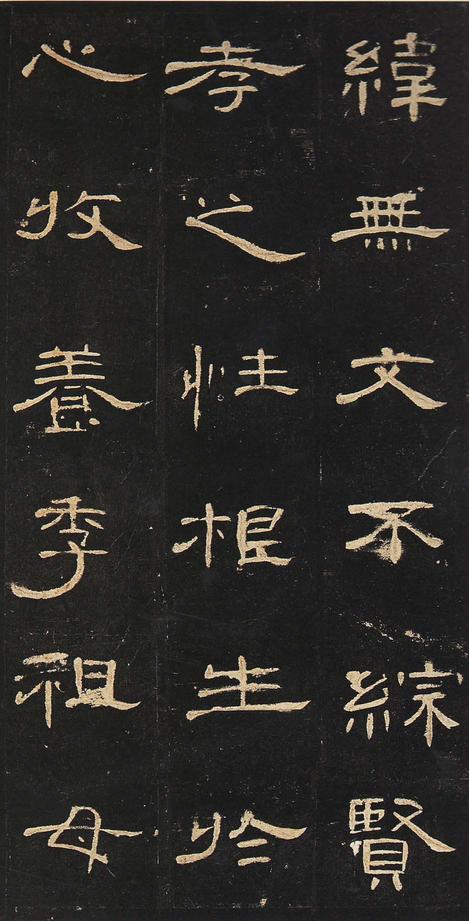 緯無文不綜賢
孝之性根生於
心收養季祖母